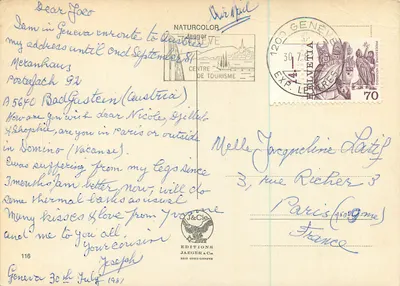 Dear Jaco
I am in Geneva enroute to Austria
my address until 2nd September 81
Meranhaus
Postfach 92
A 5640 BadGastein (Austria)
How are you with dear Nicole, Djillali
& Sophie, are you in Paris or outside
in Domino (Vacanse).
I was suffering from my legs since
3 months, am better now, will do
some thermal baths as usual
Many kisses & love from Yvonne
and me to you all.
Your cousin
Joseph
Geneva 30th July 1981
116
NATURCOLOR
CENTRE
DE TOURISME
1200 GENEVE
EXP. LETTRES
HELVETIA
70
EDITIONS
JAEGER & Cie
Melle Jacqueline Latif
3, rue Richer 3
Paris (9eme)
France